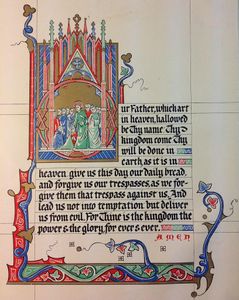 ur Father, which art
in heaven, hallowed
be Thy name. Thy
kingdom come Thy
will be done in
earth, as it is in
heaven. give us this day our daily bread,
and forgive us our trespasses, as we for-
give them that trespass against us. And
lead us not into temptation but deliver
us from evil. For Thyne is the kingdom the
power & the glory, for ever & ever.
AMEN